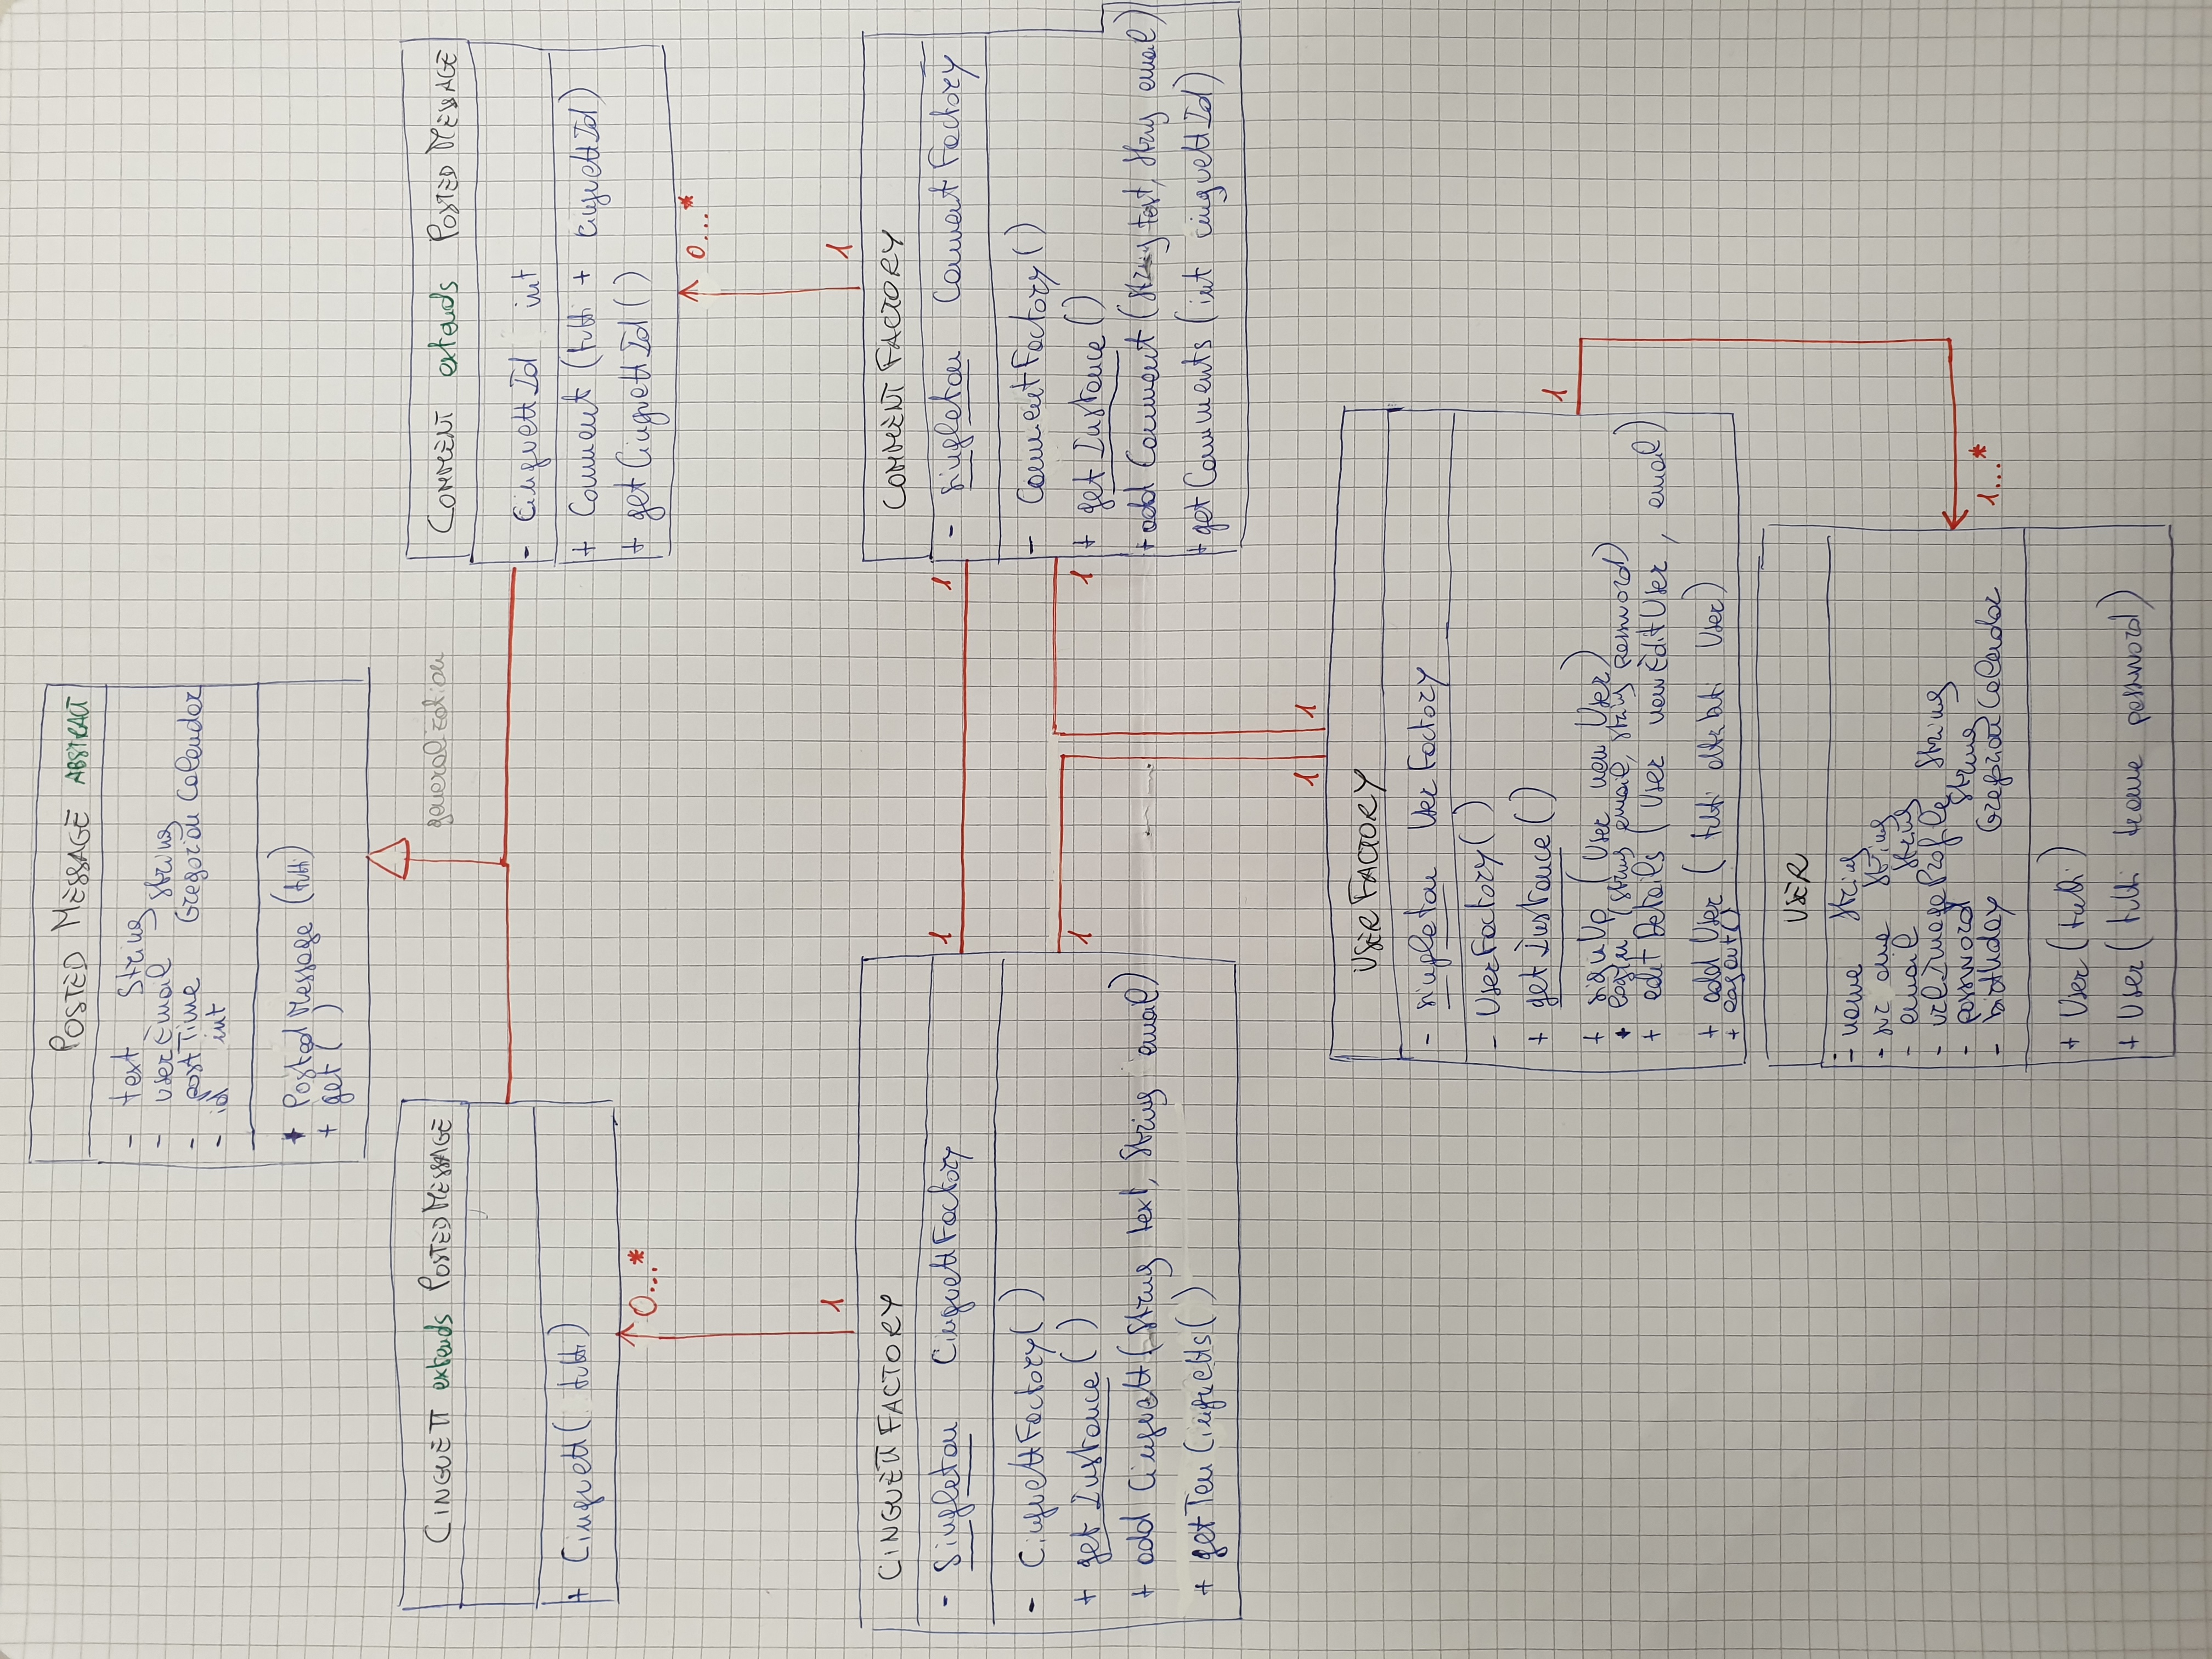 POSTED MESSAGE ABSTRACT
- text String
- userEmail String
- postTime GregorianCalendar
- id int
+ PostedMessage (tutti)
+ get ( )
generalization
CINGUETT extends POSTEDMESSAGE
+ Cinguett ( tutti)
0...*
1
COMMENT extends POSTED MESSAGE
- CinguettId int
+ Comment (tutti + cinguettId)
+ getCinguettId ( )
0...*
1
CINGUETT FACTORY
- Singleton CinguettFactory
- CinguettFactory( )
+ get Instance ( )
+ add Cinguett (String text, String email)
+ getTenCinguetts ( )
1 1
1 1
COMMENT FACTORY
- singleton CommentFactory
- CommentFactory ( )
+ get Instance ( )
+ add Comment (String text, String email)
+ getComments (int cinguettId)
1 1
USER FACTORY
- singleton UserFactory
- UserFactory ( )
+ get Instance ( )
+ signUp (User newUser)
+ login (String email, String password)
+ editDetails (User newEditUser, email)
+ add User ( tutti attributi User)
+ logout()
1
USER
- name String
- email String
- urlImageProfile String
- password String
- birthday GregorianCalendar
1...*
+ User (tutti)
+ User ( tutti tranne password)